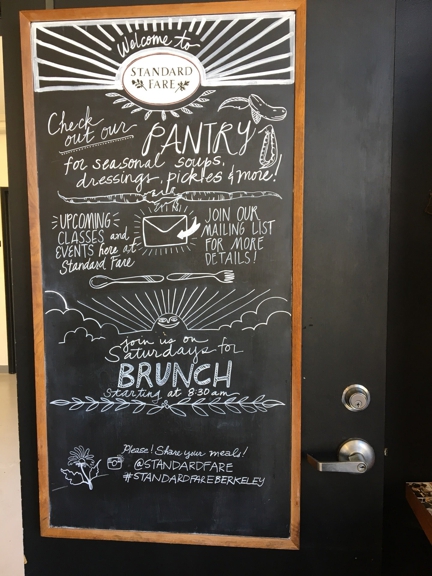 Welcome to
STANDARD
FARE
Check
out our
PANTRY
for seasonal soups,
dressings, pickles & more!
UPCOMING
CLASSES and
EVENTS here at
Standard Fare
JOIN OUR
MAILING LIST
FOR MORE
DETAILS!
join us on
Saturdays for
BRUNCH
Starting at 8:30 am
Please! Share your meals!
@STANDARDFARE
#STANDARDFAREBERKELEY